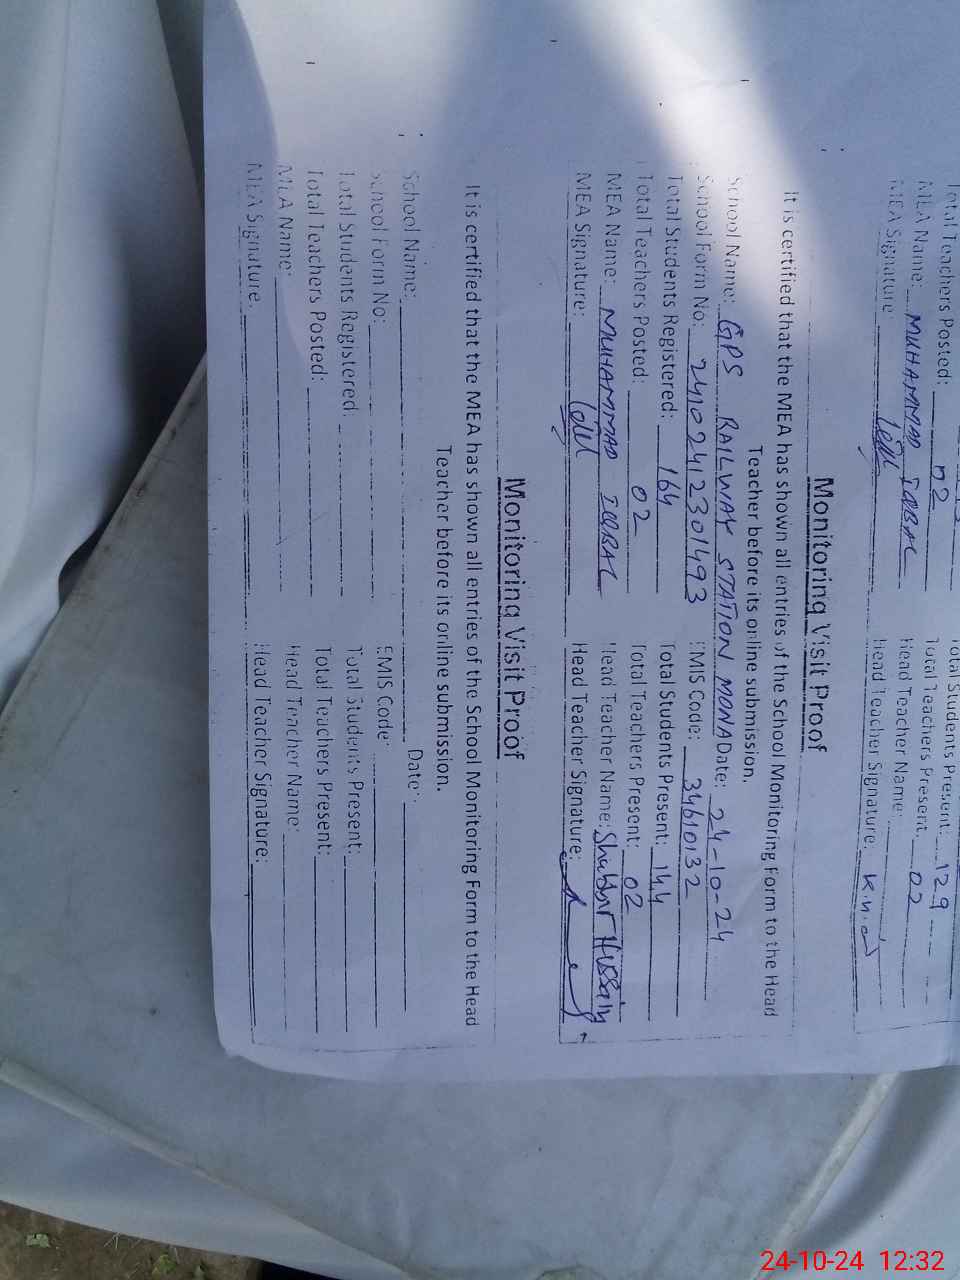 Total Students Present: 129
Total Teachers Posted: 02 Total Teachers Present: 02
MEA Name: MUHAMMAD IQBAL Head Teacher Name:
MEA Signature: Head Teacher Signature:
Monitoring Visit Proof
It is certified that the MEA has shown all entries of the School Monitoring Form to the Head
Teacher before its online submission.
School Name: GPS RAILWAY STATION MONA Date: 24-10-24
School Form No: 24102412301493 EMIS Code: 34610132
Total Students Registered: 164 Total Students Present: 144
Total Teachers Posted: 02 Total Teachers Present: 02
MEA Name: MUHAMMAD IQBAL Head Teacher Name: Shabbir Hussain
MEA Signature: Head Teacher Signature:
Monitoring Visit Proof
It is certified that the MEA has shown all entries of the School Monitoring Form to the Head
Teacher before its online submission.
School Name: Date:
School Form No: EMIS Code:
Total Students Registered: Total Students Present:
Total Teachers Posted: Total Teachers Present:
MEA Name: Head Teacher Name:
MEA Signature: Head Teacher Signature:
24-10-24 12:32